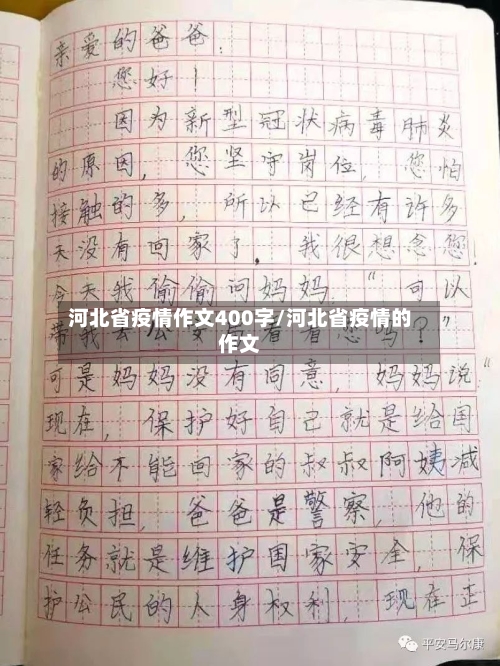 亲爱的爸爸:
您好!
因为新型冠状病毒肺炎
的原因,您坚守岗位,您怕
接触的多,所以已经有许多
天没有回家了,我很想念您!
今天我偷偷问妈妈,“可以
河北省疫情作文400字/河北省疫情的
作文
吗?”
可是妈妈没有同意,妈妈说
现在,保护好自己就是给国
家给不能回家的叔叔阿姨减
轻负担,爸爸是警察,他的
任务就是维护国家安全,保
护公民的人身权利,现在正
平安马尔康